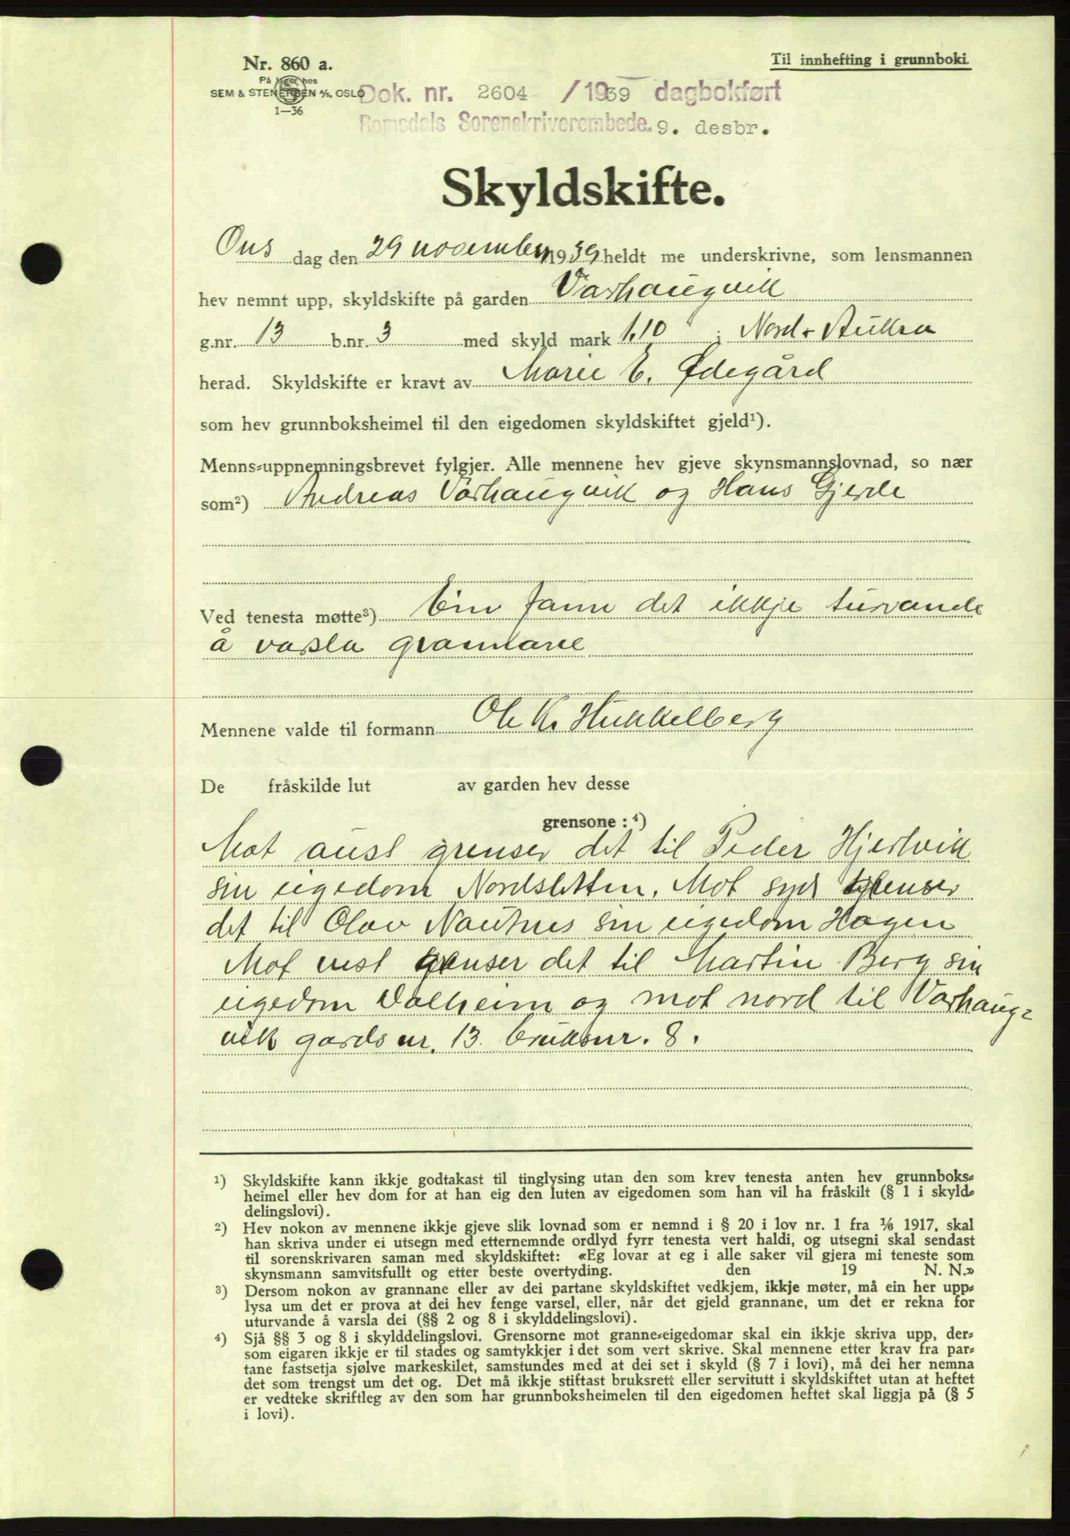 Nr. 860 a.
Til innhefting i grunnboki.
På lager hos
SEM & STENERSEN A/S, OSLO
1—36
Dok. nr. 2604 /1939 dagbokført
Romsdals Sorenskriverembede. 9. desbr.
Skyldskifte.
Ons dag den 29 november 1939 heldt me underskrivne, som lensmannen
hev nemnt upp, skyldskifte på garden Varhaugvik
g.nr. 13 b.nr. 3 med skyld mark 1.10 i Nord-Aukra
herad. Skyldskifte er kravt av Marie E. Ødegård
som hev grunnboksheimel til den eigedomen skyldskiftet gjeld¹).
Menns-uppnemningsbrevet fylgjer. Alle mennene hev gjeve skynsmannslovnad, so nær
som²) Andreas Varhaugvik og Hans Gjerde
Ved tenesta møtte³) Ein fann det ikkje turvande
å varsla grannane
Mennene valde til formann Ole K. Hukkelberg
De fråskilde lut av garden hev desse
grensone :⁴)
Mot aust grenser det til Peder Hjertvik
sin eigedom Nordsletten. Mot syd grenser
det til Olav Nautnes sin eigedom Hagen
Mot vest grenser det til Martin Berg sin
eigedom Valheim og mot nord til Varhaug-
vik gards nr. 13 bruksnr. 8.
¹) Skyldskifte kann ikkje godtakast til tinglysing utan den som krev tenesta anten hev grunnboks-
heimel eller hev dom for at han eig den luten av eigedomen som han vil ha fråskilt (§ 1 i skyld-
delingslovi).
²) Hev nokon av mennene ikkje gjeve slik lovnad som er nemnd i § 20 i lov nr. 1 fra ⅟₆ 1917, skal
han skriva under ei utsegn med etternemnde ordlyd fyrr tenesta vert haldi, og utsegni skal sendast
til sorenskrivaren saman med skyldskiftet: «Eg lovar at eg i alle saker vil gjera mi teneste som
skynsmann samvitsfullt og etter beste overtyding. den 19 N. N.»
³) Dersom nokon av grannane eller av dei partane skyldskiftet vedkjem, ikkje møter, må ein her upp-
lysa um det er prova at dei hev fenge varsel, eller, når det gjeld grannane, um det er rekna for
uturvande å varsla dei (§§ 2 og 8 i skylddelingslovi).
⁴) Sjå §§ 3 og 8 i skylddelingslovi. Grensorne mot granne-eigedomar skal ein ikkje skriva upp, der-
som eigaren ikkje er til stades og samtykkjer i det som vert skrive. Skal mennene etter krav fra par-
tane fastsetja sjølve markeskilet, samstundes med at dei set i skyld (§ 7 i lovi), må dei her nemna
det som trengst um det og. Det må ikkje stiftast bruksrett eller servitutt i skyldskiftet utan at heftet
er vedteke skriftleg av den som har grunnboksheimelen til den eigedomen heftet skal liggja på (§ 5
i lovi).